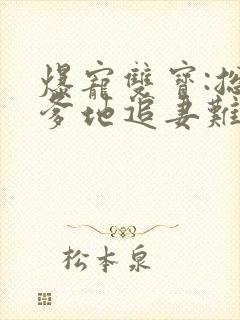 爆寵雙寶:總
爹地追妻難
松本泉